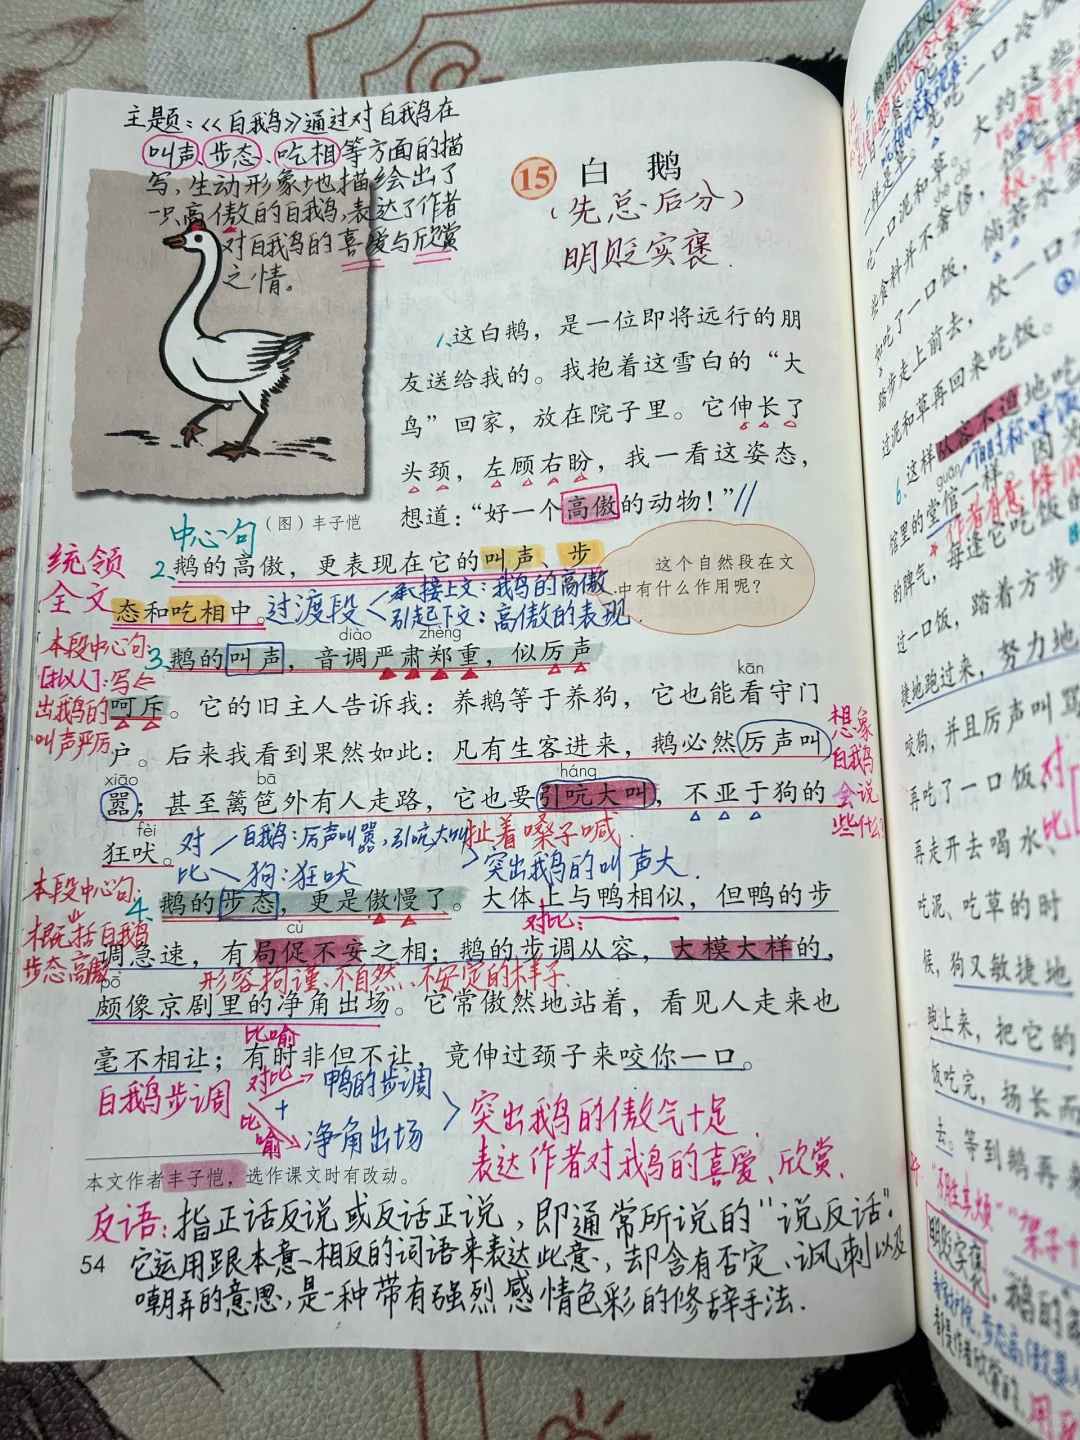 主题:《白鹅》通过对白鹅在
叫声、步态、吃相等方面的描
写,生动形象地描绘出了
一只高傲的白鹅,表达了作者
对白鹅的喜爱与欣赏
之情。
15 白鹅
(先总后分)
明贬实褒.
1、这白鹅,是一位即将远行的朋
友送给我的。我抱着这雪白的“大
鸟”回家,放在院子里。它伸长了
头颈,左顾右盼,我一看这姿态,
想道:“好一个高傲的动物!”//
(图)丰子恺
中心句
统领
全文
2、鹅的高傲,更表现在它的叫声、步
态和吃相中。
过渡段
承接上文:鹅的高傲.
引起下文:高傲的表现.
这个自然段在文
中有什么作用呢?
本段中心句:
[拟人]:写
出鹅的
叫声严厉
diào zhèng
3、鹅的叫声,音调严肃郑重,似厉声
kān
呵斥。它的旧主人告诉我:养鹅等于养狗,它也能看守门
户。后来我看到果然如此:凡有生客进来,鹅必然厉声叫
xiāo bā háng
嚣;甚至篱笆外有人走路,它也要引吭大叫,不亚于狗的
fèi
狂吠。
想象
白鹅
会说
些什么?
对比
白鹅:厉声叫嚣,引吭大叫
狗:狂吠
扯着嗓子喊.
突出鹅的叫声大.
本段中心句:
概括白鹅
步态高傲
4、鹅的步态,更是傲慢了。大体上与鸭相似,但鸭的步
对比:
cù
调急速,有局促不安之相;鹅的步调从容,大模大样的,
形容拘谨、不自然、不安定的样子.
pō
颇像京剧里的净角出场。它常傲然地站着,看见人走来也
比喻
毫不相让;有时非但不让,竟伸过颈子来咬你一口。
白鹅步调
对比
鸭的步调
+
比喻
净角出场
突出鹅的傲气十足.
表达作者对鹅的喜爱、欣赏.
本文作者丰子恺,选作课文时有改动。
反语:指正话反说或反话正说,即通常所说的“说反话”.
它运用跟本意相反的词语来表达此意,却含有否定、讽刺以及
嘲弄的意思,是一种带有强烈感情色彩的修辞手法.
54
吃一口泥和草
些食料并不奢侈,
如吃了一口饭,倘若水盆
踏步走上前去,饮一口
过泥和草再回来吃饭。
6、这样从容不迫地吃
guǎn
馆里的堂倌一样。因为
的脾气,每逢它吃饭的
过一口饭,踏着方步
捷地跑过来,努力地
咬狗,并且厉声叫骂
再吃了一口饭,
对比
再走开去喝水、
吃泥、吃草的时
候,狗又敏捷地
跑上来,把它的
饭吃完,扬长而
去。等到鹅再来
“不胜其烦”
明贬实褒